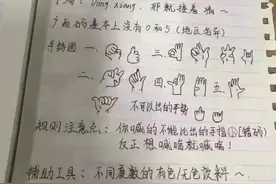 Dong xiang. 那就接着
面的基本上没有0和5 (地区差异)
手势图 一、 二、 三、
四、
不可以出的手势
规则注意点：你喊的不能比出的手指
反正想喊啥都喊啥!
辅助工具：不同度数的有色/无色饮料~